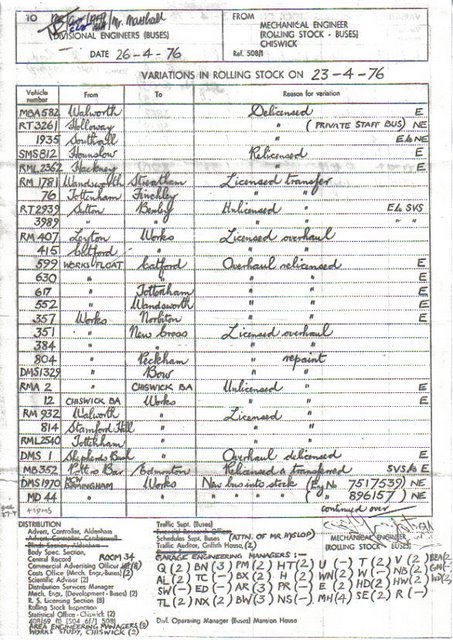 TO Mr. Marshall
(DIVISIONAL ENGINEERS (BUSES)
DATE 26-4-76
FROM
MECHANICAL ENGINEER
(ROLLING STOCK - BUSES)
CHISWICK
Ref. 508/1
VARIATIONS IN ROLLING STOCK ON 23-4-76
Vehicle number From To Reason for variation
MBA582 Walworth Delicensed E
RT3261 Holloway " (PRIVATE STAFF BUS) NE
1935 Southall " NE
SMS812 Hounslow Relicensed E
RML2362 Hackney " E
RM 1781 Wandsworth Streatham Licensed transfer
76 Tottenham Finchley " "
RT2939 Sutton Bexley Unlicensed " SVS
3989 " " " " " "
RM 407 Leyton Works Licensed overhaul E
416 Catford " " " E
599 WORKS FLOAT Catford Overhaul relicensed E
630 " " " " E
617 " Tottenham " " E
552 " Wandsworth " " E
357 Works Norbiton " " E
351 " New Cross Licensed overhaul
384 " " " "
804 " Peckham " repaint
DMS1329 " Bow " "
RMA 2 " CHISWICK BA Unlicensed " E
12 CHISWICK BA Works " " E
RM 932 Walworth " Licensed "
814 Stamford Hill " " "
RML2540 Tottenham " " "
DMS 1 Shepherds Bush Overhaul delicensed E
MB352 Potters Bar Edmonton Relicensed & transferred SVS E
DMS1970 BIRMINGHAM Works New bus into stock (Eng No 7517539) NE
MD 44 " " " " " " ( " " 896157) NE
continued over
DISTRIBUTION
Adven. Controller, Aldenham
Body Spec. Section,
Central Record ROOM 34
Commercial Advertising Officer
Costs Officer (Mech. Engr.-Buses) (2)
Scientific Adviser (2)
Distribution Services Manager
Mech. Engrs, (Development - Buses) (2)
R. S. Licensing Section (8)
Rolling Stock Inspection
Statistical Officer - Chiswick (2)
AREA ENGINEERING MANAGERS
WORKS STUDY, CHISWICK (2)
Traffic Supt. (Buses)
Schedules Supt. (Buses) (ATTN. OF MR HYSLOP)
Traffic Auditor, Griffith House, (2)
MECHANICAL ENGINEER
(ROLLING STOCK BUSES)
GARAGE ENGINEERING MANAGERS :-
Q (2) BN (3) PM (2) HT (2) U (-) T (2) V (2)
AL (2) TC (-) BX (2) H (2) WN (2) W (-) NB (2)
SW (-) ED (-) AR (3) PR (-) E (2) HD (2) HW (2)
TL (2) NX (2) BW (3) NS (-) MH (4) SE (2) R (-)
Divl. Operating Manager (Buses) Mansion House